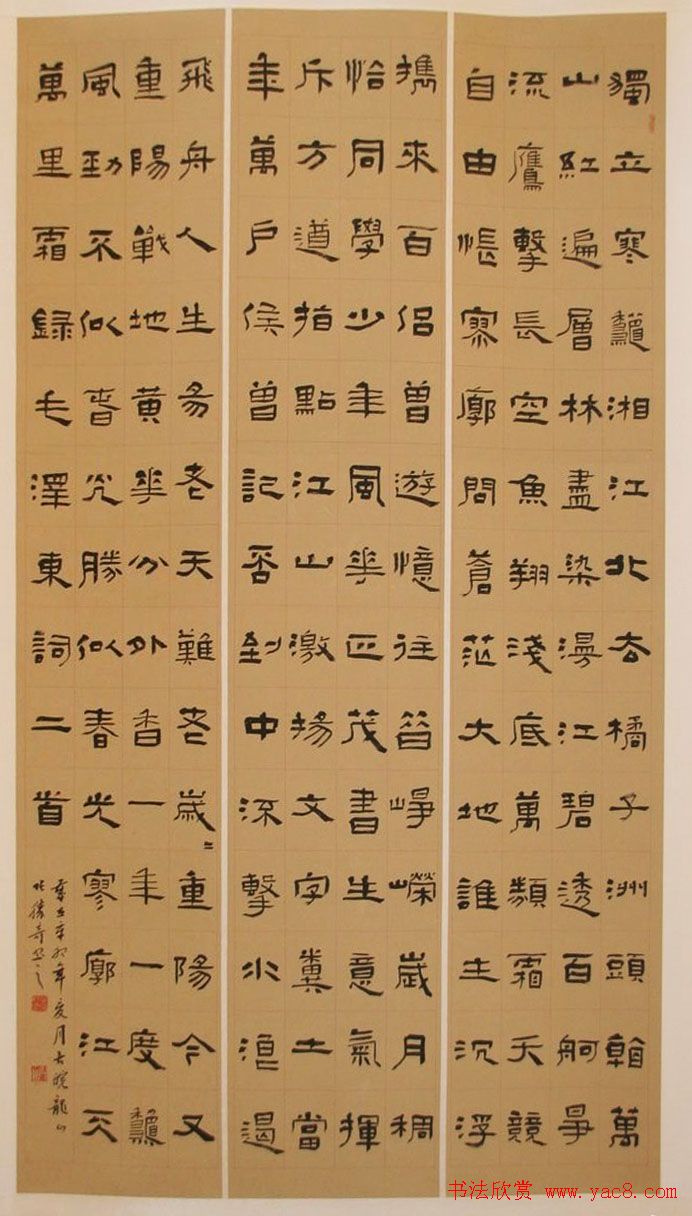 獨立寒龝湘江北去橘子洲頭看萬
山紅遍層林盡染漫江碧透百舸爭
流鷹擊長空魚翔淺底萬類霜天競
自由悵寥廓問蒼茫大地誰主沉浮
攜來百侶曾遊憶往昔崢嶸歲月稠
恰同學少年風華正茂書生意氣揮
斥方遒指點江山激揚文字糞土當
年萬戶侯曾記否到中流擊水浪遏
飛舟人生易老天難老歲〻重陽今又
重陽戰地黃華分外香一年一度龝
風勁不似春光勝似春光寥廓江天
萬里霜錄毛澤東詞二首
辛卯年亥月古皖龍山
勝奇書之
书法欣赏 www.yac8.com